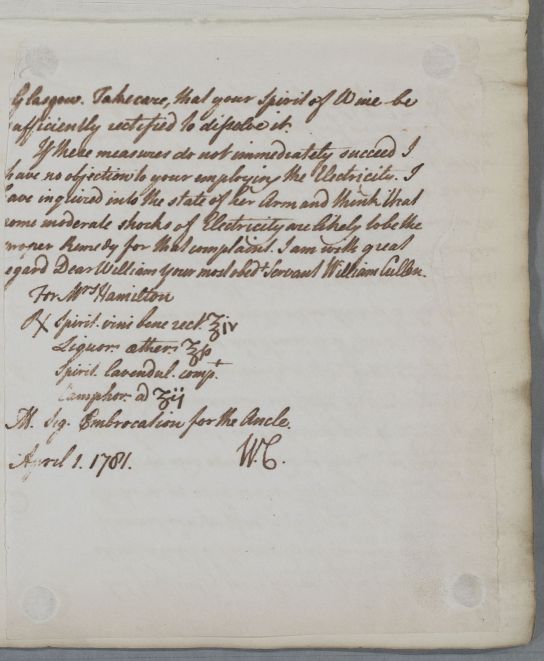 Glasgow. Take care, that your Spirit of Wine be
sufficiently rectified to dissolve it.
If these measures do not immediately succeed I
have no objection to your employing the Electricity. I
have inquired into the state of her Arm and think that
some moderate shocks of Electricity are likely to be the
proper Remedy for that complaint. I am with great
regard Dear William your most obedt Servant William Cullen.
For Mrs Hamilton
℞ Spirit. vini bene rect. ℥iv
Liquor. æther. ℥ß
Spirit. lavendul. compt.
Camphor. a̅d̅ ʒij
M. Sig. Embrocation for the Ancle.
April 1. 1781. W.C.